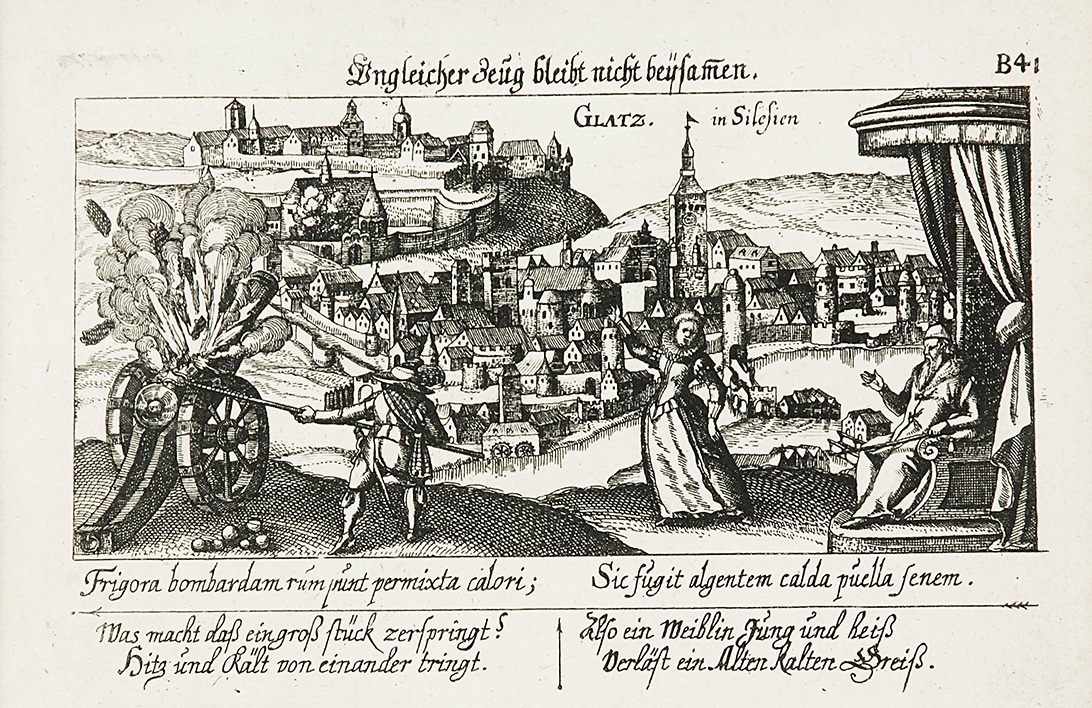 Ungleicher Zeug bleibt nicht beÿsam̄en.
B41
GLATZ. in Silesien
Frigora bombardam rumpunt permixta calori; Sic fugit algentem calda puella senem.
Was macht daß ein groß stück zerspringt?
Hitz und Kält von einander tringt.
Also ein Weiblin Jung und heiß
Verläst ein Alten Kalten Greiß.